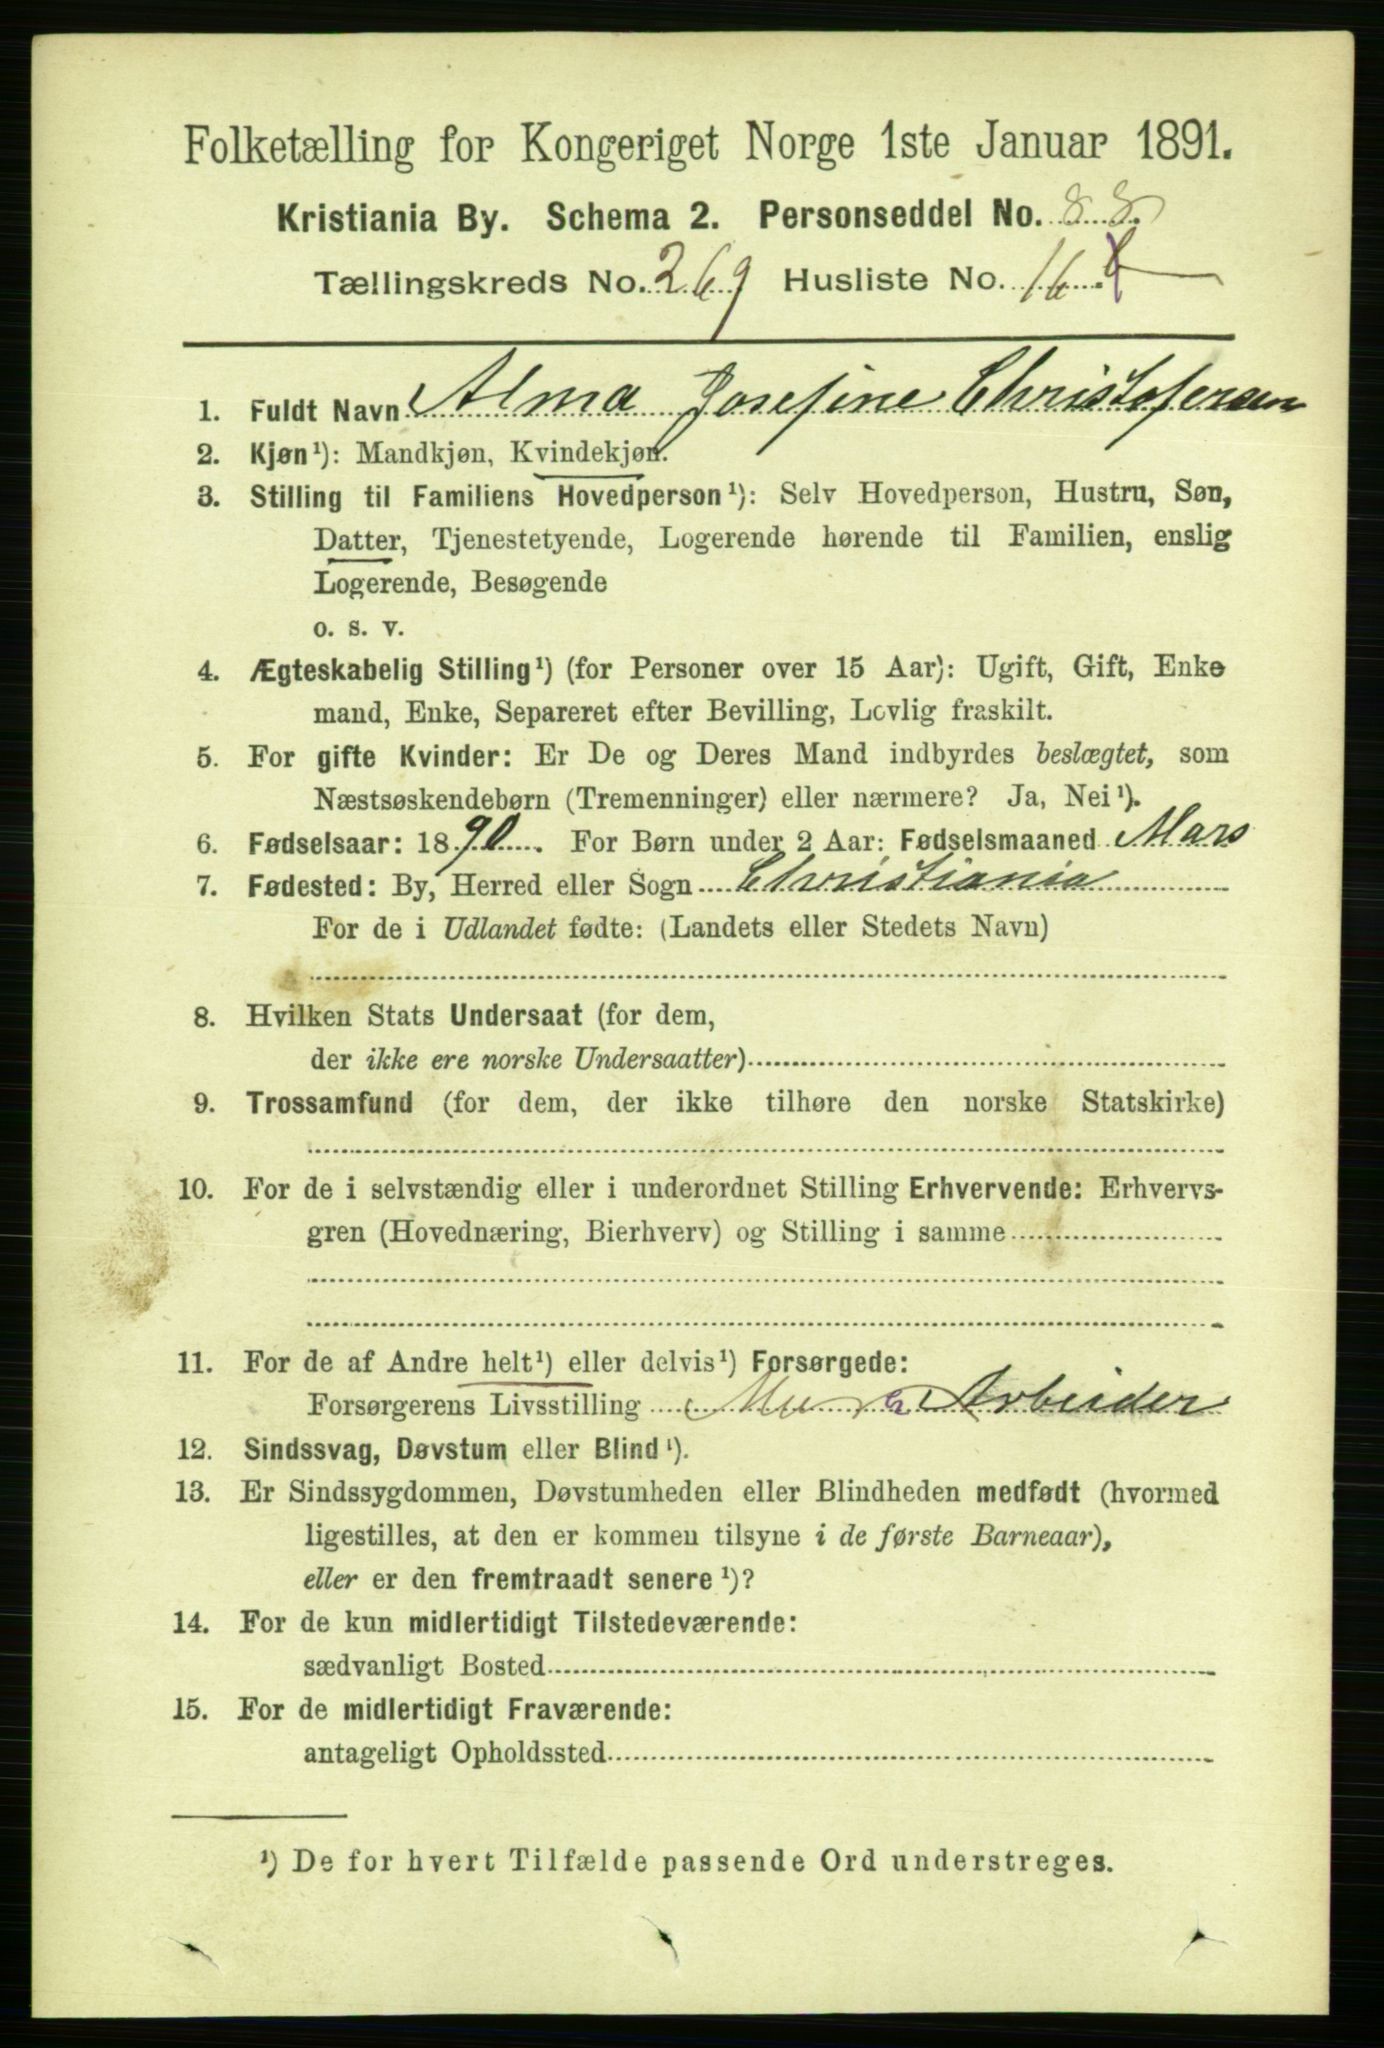 Folketælling for Kongeriget Norge 1ste Januar 1891.
Kristiania By. Schema 2. Personseddel No. 88.
Tællingskreds No. 269 Husliste No. 16
1. Fuldt Navn Alma Josefine Christofersen
2. Kjøn¹): Mandkjøn, Kvindekjøn.
3. Stilling til Familiens Hovedperson¹): Selv Hovedperson, Hustru, Søn,
Datter, Tjenestetyende, Logerende hørende til Familien, enslig
Logerende, Besøgende
o. s. v.
4. Ægteskabelig Stilling¹) (for Personer over 15 Aar): Ugift, Gift, Enke
mand, Enke, Separeret efter Bevilling, Lovlig fraskilt.
5. For gifte Kvinder: Er De og Deres Mand indbyrdes beslægtet, som
Næstsøskendebørn (Tremenninger) eller nærmere? Ja, Nei¹).
6. Fødselsaar: 1890. For Børn under 2 Aar: Fødselsmaaned Mars
7. Fødested: By, Herred eller Sogn Christiania
For de i Udlandet fødte: (Landets eller Stedets Navn)
8. Hvilken Stats Undersaat (for dem,
der ikke ere norske Undersaatter)
9. Trossamfund (for dem, der ikke tilhøre den norske Statskirke)
10. For de i selvstændig eller i underordnet Stilling Erhvervende: Erhvervs-
gren (Hovednæring, Bierhverv) og Stilling i samme
11. For de af Andre helt¹) eller delvis¹) Forsørgede:
Forsørgerens Livsstilling Mur Arbeider
12. Sindssvag, Døvstum eller Blind¹).
13. Er Sindssygdommen, Døvstumheden eller Blindheden medfødt (hvormed
ligestilles, at den er kommen tilsyne i de første Barneaar),
eller er den fremtraadt senere¹)?
14. For de kun midlertidigt Tilstedeværende:
sædvanligt Bosted
15. For de midlertidigt Fraværende:
antageligt Opholdssted
¹) De for hvert Tilfælde passende Ord understreges.